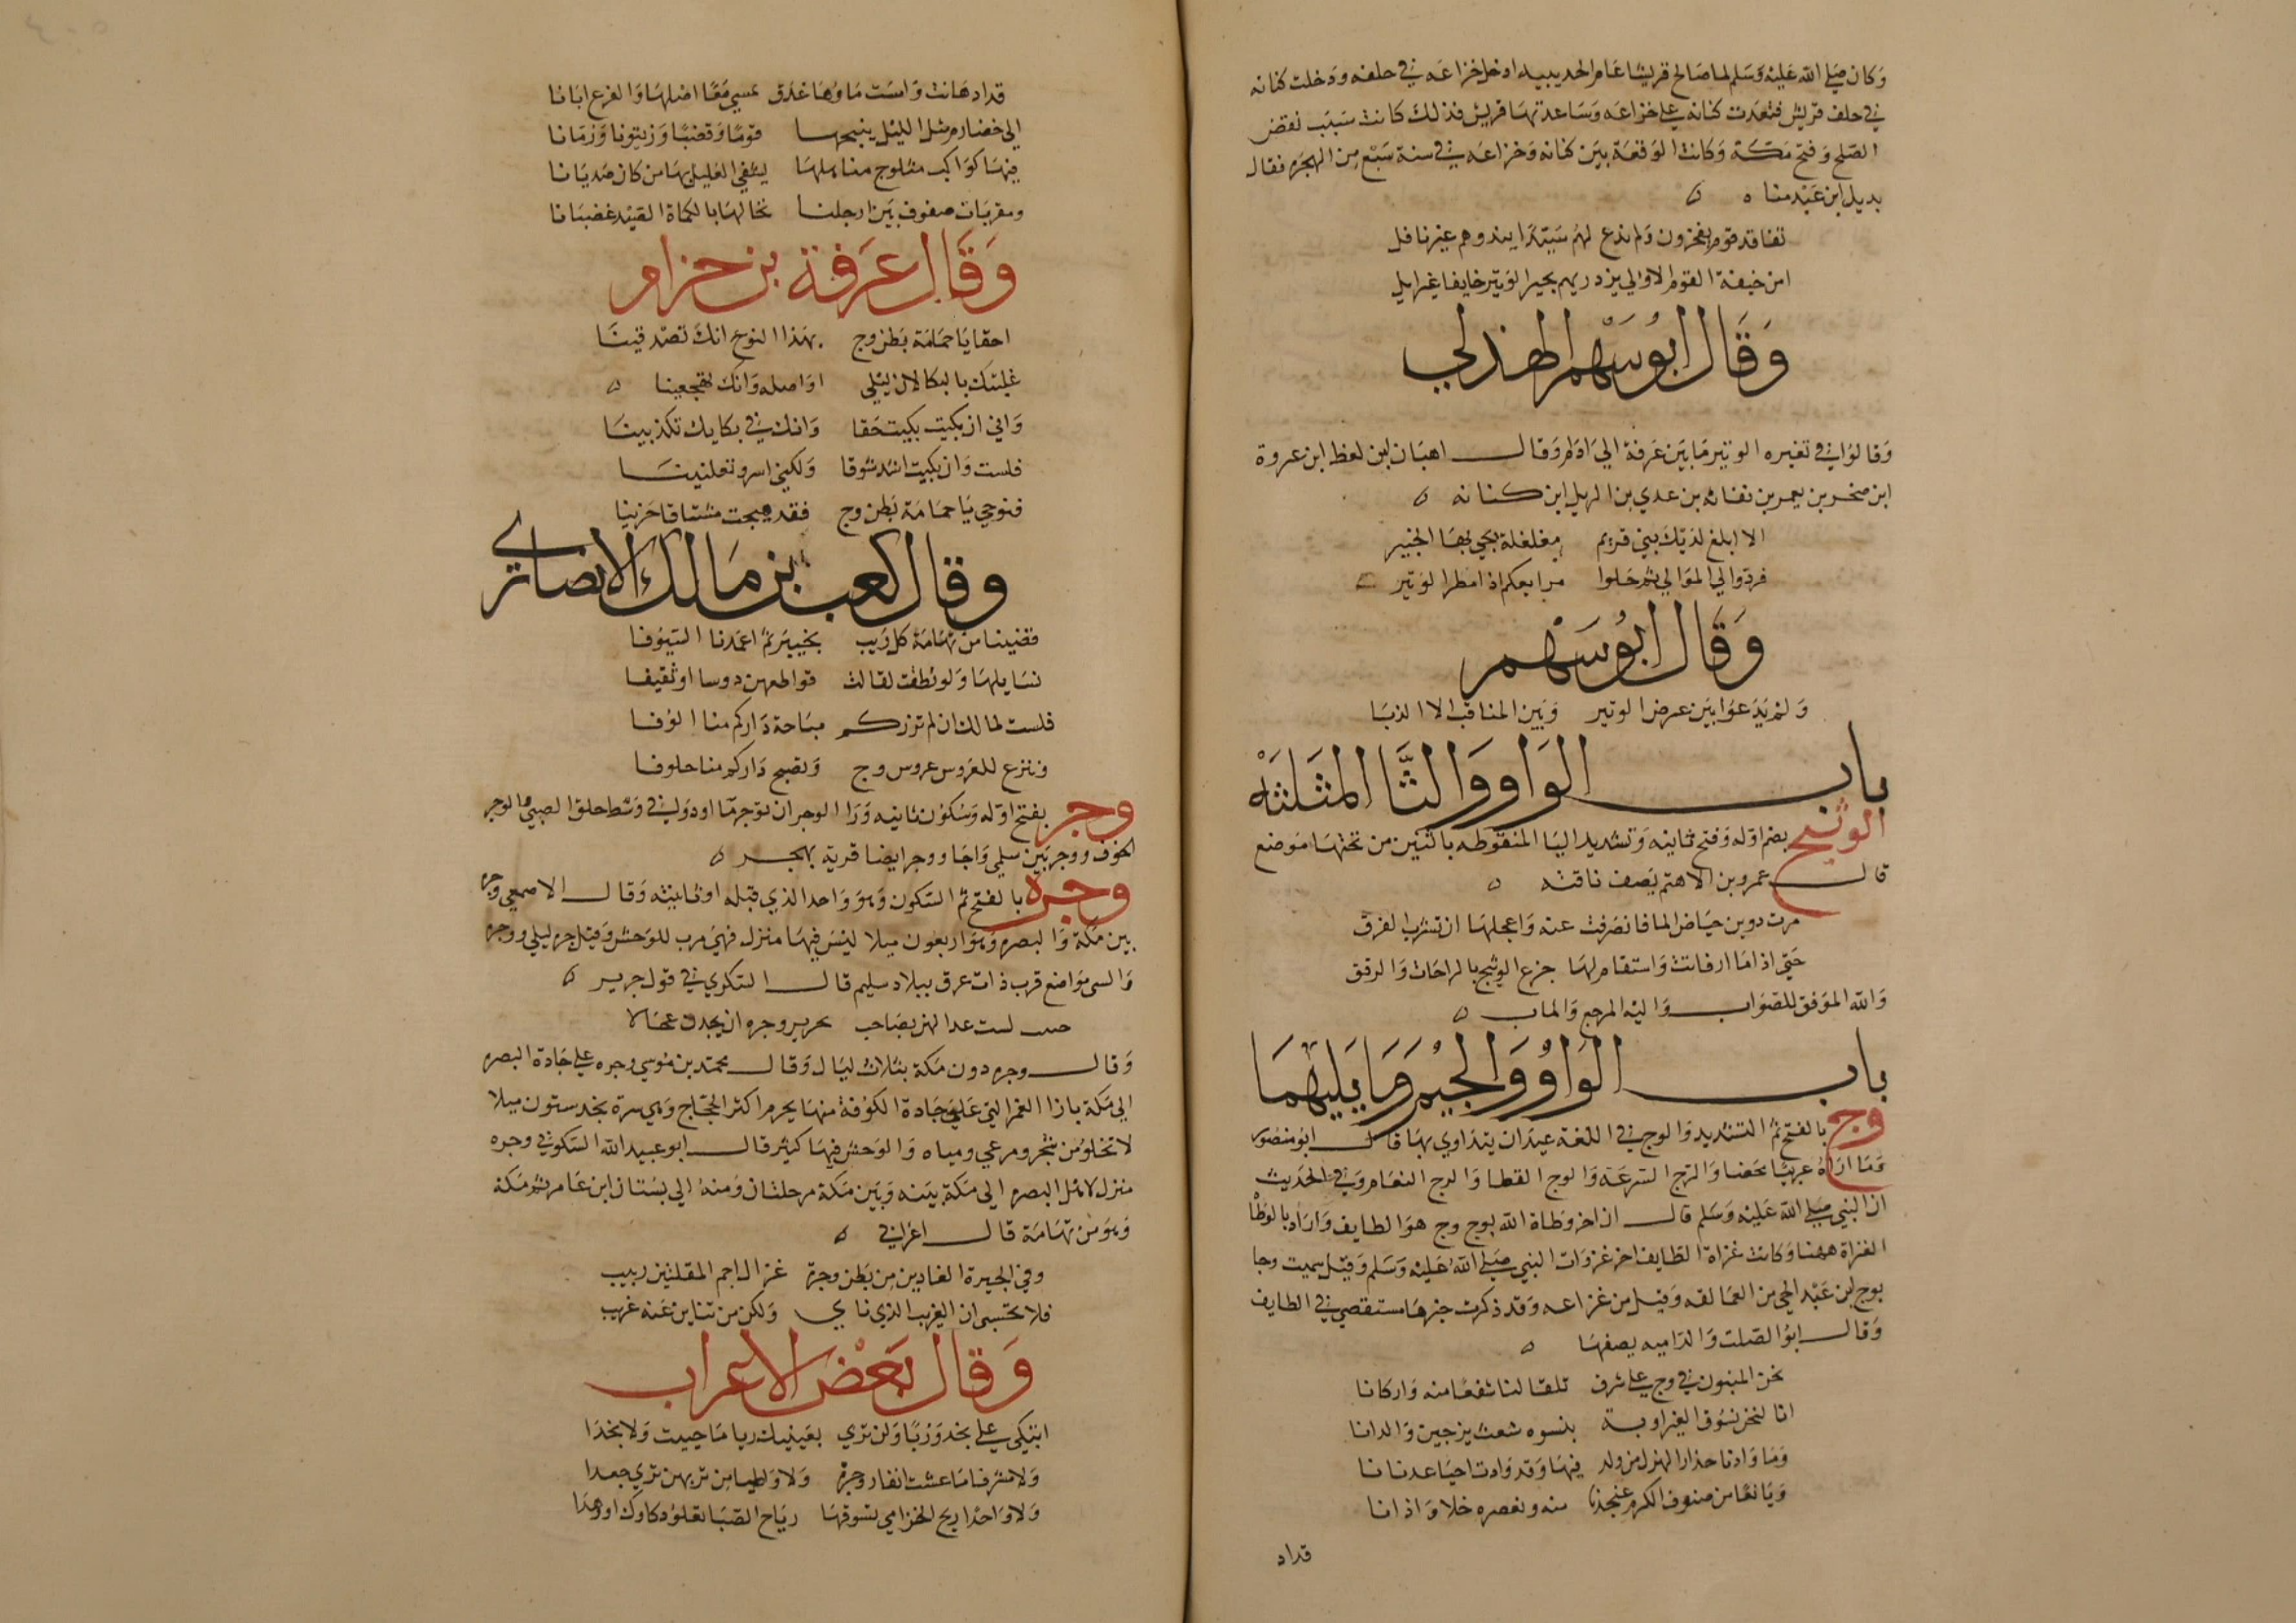 وكان صلى الله عليه وسلم لما صالح قريشا عام الحديبيه ادخل خزاعه في حلفه ودخلت كنانه
في حلف قريش فتعدت كنانه على خزاعه وساعدتها قريش فذلك كانت سبب نقض
الصلح وفتح مكة وكانت الوقعة بين كنانه وخزاعه في سنة سبع من الهجره فقال
بديل ابن عبد منا ه
تفاقد قوم يفخرون ولم ندع لهم سيدا يندوهم غير نافل
امن خيفة القوم الاولي يزدريهم بحيرا لوتير خايفا غير ايل
وقال ابو سهم الهذلي
وقالوا في تفسيره الوتير ما بين عرفة الي ادام وقال اهبان بن لعط ابن عروة
ابن صخر بن يعمر بن نفاثه بن عدي بن الديل ابن كنانه ه
الا ابلغ لديك بني قريم مغلغلة يجي بها الخبير
فردوا لي الموالي ثم حلوا مرابعكم اذا امطر الوتير
وقال ابو سهم
ولم يدعوا بين عرض الوتير وبين المناقب الا الذيبا
باب الواو والثا المثلثه
الوثيج بضم اوله وفتح ثانيه وتشديد اليا المنقوطه باثنين من تحتها موضع
قال عمرو بن الاهتم يصف ناقته ه
مرت دوين حياض الما فانصرفت عنه واعجلها ان تشرب الفرق
حتي اذا ما ارفانت واستقام لها جزع الوثيج بالراحات والرفق
والله الموفق للصواب واليه المرجع والماب ه
باب الواو والجيم وما يليهما
وج بالفتح ثم التشديد والوج في اللغة عيدان يتداوي بها قال ابو منصور
وما اراه عربيا محضا والوج السرعه والوج القطا والوج النعام وفي الحديث
ان النبي صلى الله عليه وسلم قال ان اخر وطاة الله بوج وج هو الطايف واراد بالوطا
الغزاة ههنا وكانت غزاة الطايف اخر غزوات النبي صلى الله عليه وسلم وقيل سميت وجا
بوج بن عبد الحي من العمالقه وقيل من خزاعه وقد ذكرت خبرها مستقصي في الطايف
وقال ابو الصلت والد اميه يصفها ه
نحن المبنون في وج على شرف تلقا لنا شفعا منه واركانا
انا لنحن نسوق العير اوبة بنسوه شعث يزجين والدانا
وما وادنا حذار الهزل من ولد فيها وقد وادت احيا عدنانا
ويانعا من صنوف الكرم عنجدنا منه ونعصره خلا واذانا
قداد
قداد هانت وامست ماوها غدق يمسي معا اصلها والفرع ابانا
الى خضارم مثل الليل ينجها قوما وقضبا وزيتونا وزمانا
فيها كواكب مثلوج مناهلها يشفي الغليل بها من كان صديانا
ومقربات صفوف بين ارجلنا تخالها بالكماة الصيد غضبانا
وقال عرفة بن حزام
احقا يا حمامة بطن وج بهذا النوح انك تصدقينا
غلبتك بالبكا لان ليلي اواصله وانك تهجعينا ه
واني ان بكيت بكيت حقا وانك في بكايك تكذبينا
فلست وان بكيت اشد شوقا ولكني اسر وتعلنينا
فنوحي يا حمامة بطن وج فقد هيجت مشتاقا حزينا
وقال كعب بن مالك الانصاري
قضينا من تهامة كل ريب بخيبر ثم اغمدنا السيوفا
نسايلها ولو نطقت لقالت قواطعهن دوسا او ثقيفا
فلست لمالك ان لم تزركم بساحة داركم منا الوفا
وننزع للعروس عروس وج وتصبح داركم منا خلوفا
وجر بفتح اوله وسكون ثانيه ورا الوجر ان توجر ما او دوا في وسط حلق الصبي والوجر
الخوف ووجر بين سلمي واجا ووجر ايضا قرية بهجر ه
وجره بالفتح ثم السكون وهو واحد الذي قبله او تانيثه وقال الاصمعي وجره
بين مكة والبصره وهو اربعون ميلا ليس فيها منزل فهي مرب للوحش وقيل حره ليلي ووجره
والسي مواضع قرب ذات عرق ببلاد سليم قال السكري في قول جرير ه
حييت لست غدا لهن بصاحب بحرير وجره ان يجدن عجالا
وقال وجره دون مكة بثلاث ليال وقال محمد بن موسي وجره على جادة البصره
الى مكة بازا الغمر التي على جادة الكوفة منها يحرم اكثر الحجاج وهي سرة نجد ستون ميلا
لا تخلو من شجر ومرعي ومياه والوحش فيها كثير قال ابو عبيد الله السكوني وجره
منزل لاهل البصره الى مكة بينه وبين مكة مرحلتان ومنه الي بستان ابن عامر ثم مكة
وهو من تهامة قال اعرابي ه
وفي الجيرة الغادين من بطن وجرة غزال احم المقلتين ربيب
فلا تحسبي ان الغريب الذي ناي ولكن من تناين عنه غريب
وقال بعض الاعراب
اتبكي على نجد وريا ولن تري بعينيك ريا ما حييت ولا نجدا
ولا مشرفا ما عشت انقار وجرة ولا واطيا من تربهن ثري جعدا
ولا واجدا ريح الخزامي تسوقها رياح الصبا تعلو دكادك او وهدا